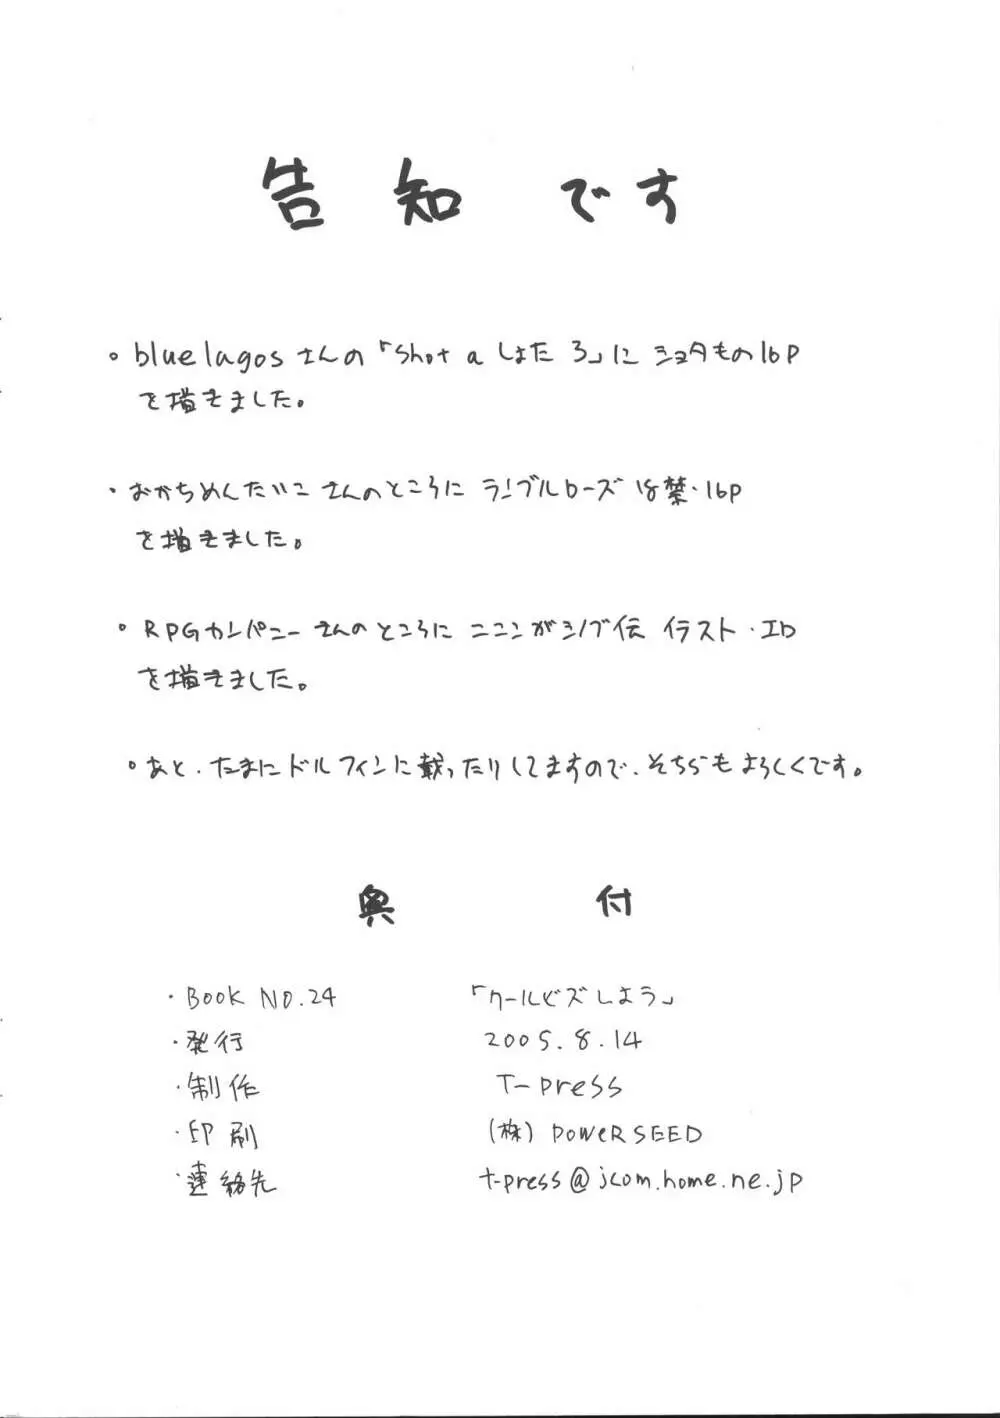 告知です
。bluelagosさんの「Shot a しょたろ」にショタもの16P
を描きました。
・おかちめんたいこさんのところにランブルローズ18禁・16P
を描きました。
。RPGカンパニーさんのところにニニンがシノブ伝 イラスト・1P
を描きました。
。あと、たまにドルフィンに載ったりしてますので、そちらもよろしくです。
奥付
・BOOK NO.24 「クールビズしよう」
・発行 2005.8.14
・制作 T-press
・印刷 (株) POWER SEED
・連絡先 t-press@jcom.home.ne.jp